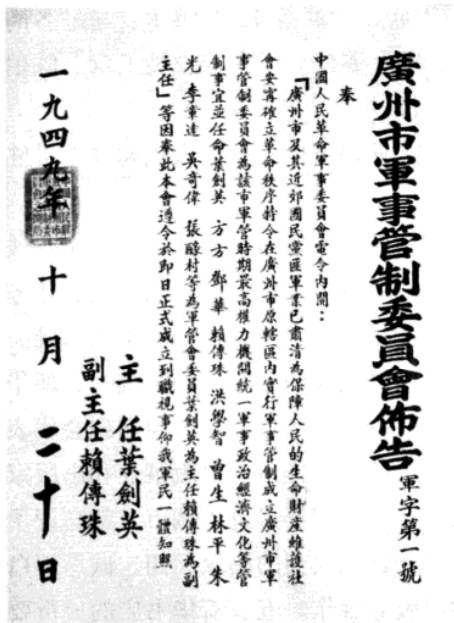 廣州市軍事管制委員會佈告 軍字第一號
奉
中國人民革命軍事委員會電令內開：
「廣州市及其近郊國民黨匪軍業已肅清為保障人民的生命財產維護社
會安寗確立革命秩序特令在廣州市原轄區內實行軍事管制成立廣州市軍
事管制委員會為該市軍管時期最高權力機關統一軍事政治經濟文化等管
制事宜並任命葉劍英　方方　鄧華　賴傳珠　洪學智　曾生　林平　朱
光　李章達　吳奇偉　張醁村等為軍管會委員葉劍英為主任賴傳珠為副
主任」等因奉此本會遵令於即日正式成立到職視事仰我軍民一體知照
主　任葉劍英
副主任賴傳珠
一九四九年十月二十日